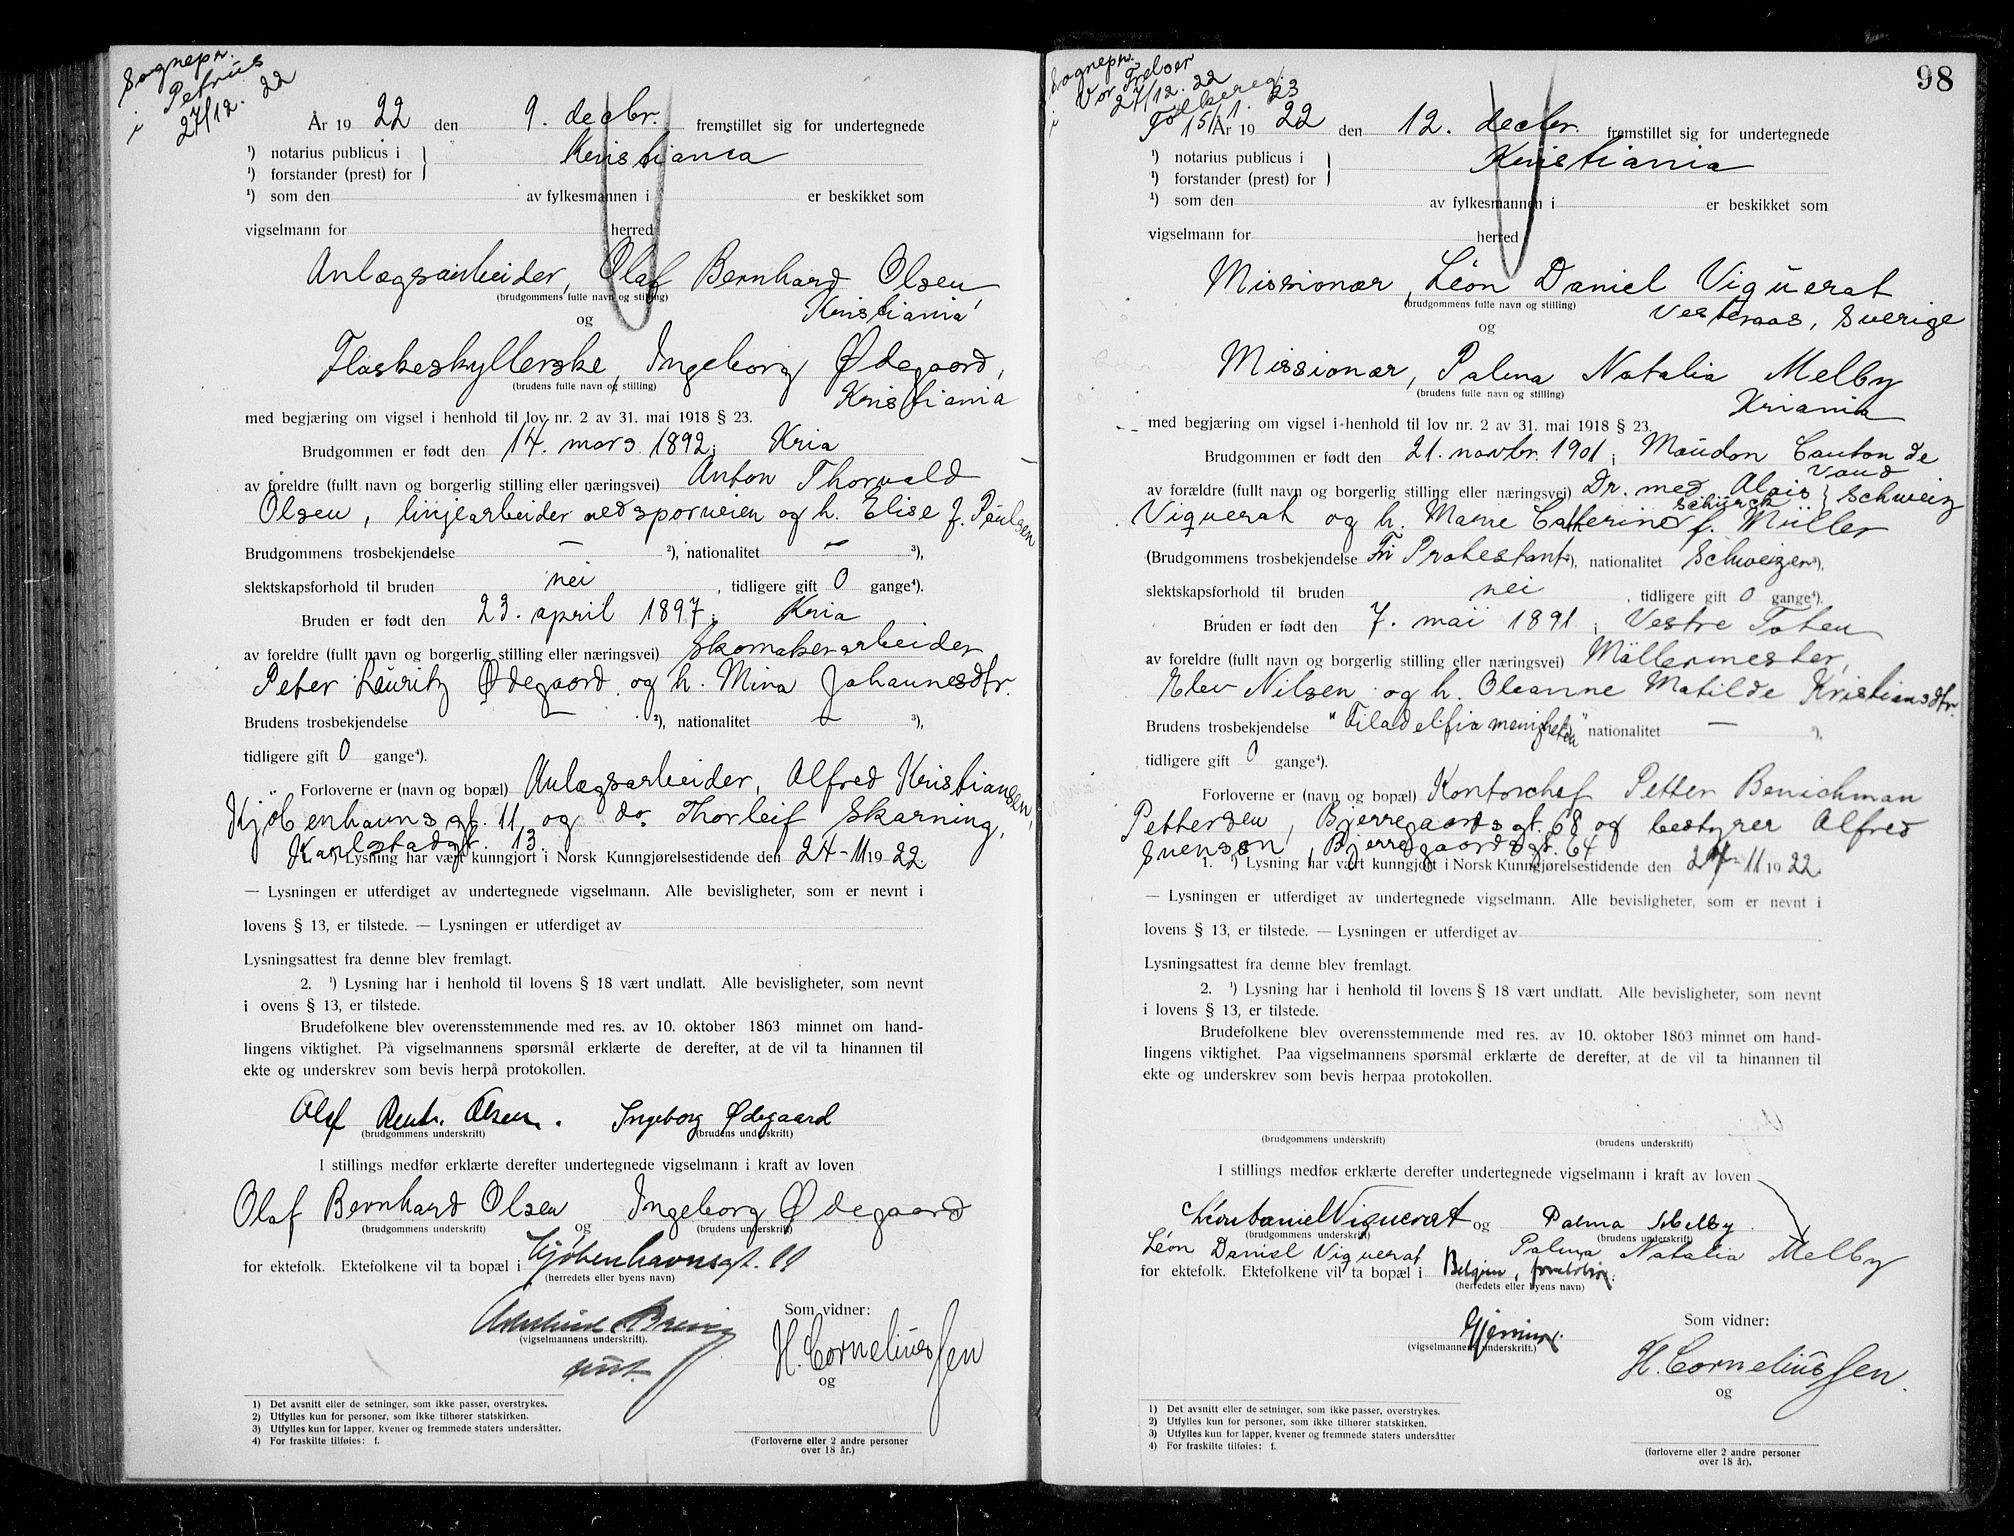 Sognepr.
i Petrus
27/12. 22
År 19 22 den 9. decbr. fremstillet sig for undertegnede
¹) notarius publicus i } Kristiania
¹) forstander (prest) for
¹) som den av fylkesmannen i er beskikket som
vigselmann for herred
Anlægsarbeider, Olaf Bernhard Olsen,
(brudgommens fulle navn og stilling)
Kristiania
og
Flaskeskyllerske, Ingeborg Ødegaard,
(brudens fulle navn og stilling)
Kristiania
med begjæring om vigsel i henhold til lov nr. 2 av 31. mai 1918 § 23.
Brudgommen er født den 14. mars 1892; Kria
av foreldre (fullt navn og borgerlig stilling eller næringsvei) Anton Thorvald
Olsen, linjearbeider ved sporveien og h. Elise f. Paulsen
Brudgommens trosbekjendelse – ²), nationalitet – ³),
slektskapsforhold til bruden nei, tidligere gift 0 gange⁴).
Bruden er født den 23. april 1897; Kria
av foreldre (fullt navn og borgerlig stilling eller næringsvei) Skomakerarbeider
Peter Lauritz Ødegaard og h. Mina Johannesdtr.
Brudens trosbekjendelse – ²), nationalitet – ³),
tidligere gift 0 gange⁴).
Forloverne er (navn og bopæl) Anlægsarbeider, Alfred Kristiansen,
Kjøbenhavnsgt. 11 og do. Thorleif Skarning,
Karlstadgt. 13.
¹) Lysning har vært kunngjort i Norsk Kunngjørelsestidende den 24-11 19 22.
— Lysningen er utferdiget av undertegnede vigselmann. Alle bevisligheter, som er nevnt i
lovens § 13, er tilstede. — Lysningen er utferdiget av
Lysningsattest fra denne blev fremlagt.
2. ¹) Lysning har i henhold til lovens § 18 vært undlatt. Alle bevisligheter, som nevnt
i ovens § 13, er tilstede.
Brudefolkene blev overensstemmende med res. av 10. oktober 1863 minnet om hand-
lingens viktighet. På vigselmannens spørsmål erklærte de derefter, at de vil ta hinannen til
ekte og underskrev som bevis herpå protokollen.
Olaf Bernh. Olsen. Ingeborg Ødegaard
(brudgommens underskrift) (brudens underskrift)
I stillings medfør erklærte derefter undertegnede vigselmann i kraft av loven
Olaf Bernhard Olsen og Ingeborg Ødegaard
(brudgommens underskrift) (brudens underskrift)
for ektefolk. Ektefolkene vil ta bopæl i Kjøbenhavnsgt. 11
(herredets eller byens navn)
(vigselmannens underskrift).
Som vidner:
H. Corneliussen
og
1) Det avsnitt eller de setninger, som ikke passer, overstrykes.
2) Utfylles kun for personer, som ikke tilhører statskirken.
3) Utfylles kun for lapper, kvener og fremmede staters undersåtter.
4) For fraskilte tilføies: f.
(Forloverne eller 2 andre personer
over 18 år.)
98
Sognepr.
i Vor Frelser
27/12. 22
Folkereg.
15/1. 23
År 19 22 den 12. decbr. fremstillet sig for undertegnede
¹) notarius publicus i } Kristiania
¹) forstander (prest) for
¹) som den av fylkesmannen i er beskikket som
vigselmann for herred
Missionær, Léon Daniel Viquerat
(brudgommens fulle navn og stilling)
Vesteraas, Sverige
og
Missionær, Palma Natalia Melby
(brudens fulle navn og stilling)
Kriania
med begjæring om vigsel i henhold til lov nr. 2 av 31. mai 1918 § 23.
Brudgommen er født den 21. novbr. 1901; Moudon Canton de
Vaud
av forældre (fullt navn og borgerlig stilling eller næringsvei) Dr. med. Alois Schweiz
Viquerat og h. Marie Catherine Schürch f. Müller
(Brudgommens trosbekjendelse Fri Protestant ²), nationalitet Schweizer ³),
slektskapsforhold til bruden nei, tidligere gift 0 gange⁴).
Bruden er født den 7. mai 1891; Vestre Toten
av foreldre (fullt navn og borgerlig stilling eller næringsvei) Møllermester,
Elev Nilsen og h. Oleanne Matilde Kristiansdtr.
Brudens trosbekjendelse "Filadelfia menigheten" nationalitet – ³),
tidligere gift 0 gange⁴).
Forloverne er (navn og bopæl) Kontorchef Petter Benichman
Pettersen, Bjerregaardsgt. 68 og bestyrer Alfred
Svensen, Bjerregaardsgt. 64
1. ¹) Lysning har vært kunngjort i Norsk Kunngjørelsestidende den 24-11 19 22.
— Lysningen er utferdiget av undertegnede vigselmann. Alle bevisligheter, som er nevnt i
lovens § 13, er tilstede. — Lysningen er utferdiget av
Lysningsattest fra denne blev fremlagt.
2. ¹) Lysning har i henhold til lovens § 18 vært undlatt. Alle bevisligheter, som nevnt
i lovens § 13, er tilstede.
Brudefolkene blev overensstemmende med res. av 10. oktober 1863 minnet om hand-
lingens viktighet. Paa vigselmannens spørsmål erklærte de derefter, at de vil ta hinannen til
ekte og underskrev som bevis herpaa protokollen.
(brudgommens underskrift) (brudens underskrift)
I stillings medfør erklærte derefter undertegnede vigselmann i kraft av loven
Léon Daniel Viquerat og Palma Melby
(brudgommens underskrift) (brudens underskrift)
Léon Daniel Viquerat Palma Natalia Melby
for ektefolk. Ektefolkene vil ta bopæl i Belgien, foreløbig.
(herredets eller byens navn)
(vigselmannens underskrift.)
Som vidner:
H. Corneliussen.
og
1) Det avsnitt eller de setninger, som ikke passer, overstrykes.
2) Utfylles kun for personer, som ikke tilhører statskirken.
3) Utfylles kun for lapper, kvener og fremmede staters undersåtter
4) For fraskilte tilføies: f.
(forloverne eller 2 andre personer
over 18 år).